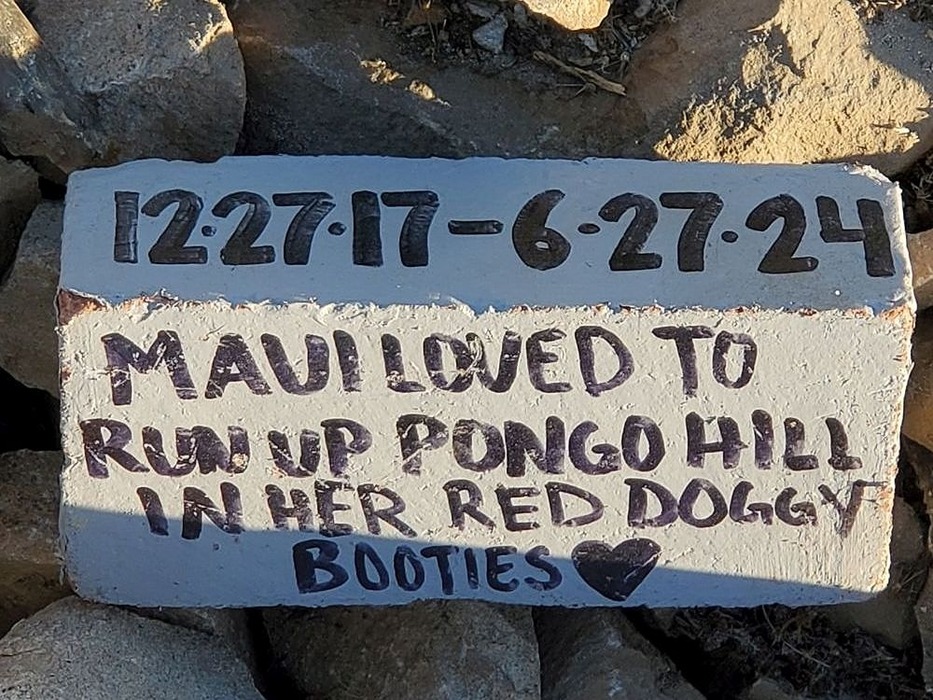 12·27·17-6·27·24
MAUI LOVED TO
RUN UP PONGO HILL
IN HER RED DOGGY
BOOTIES ♥